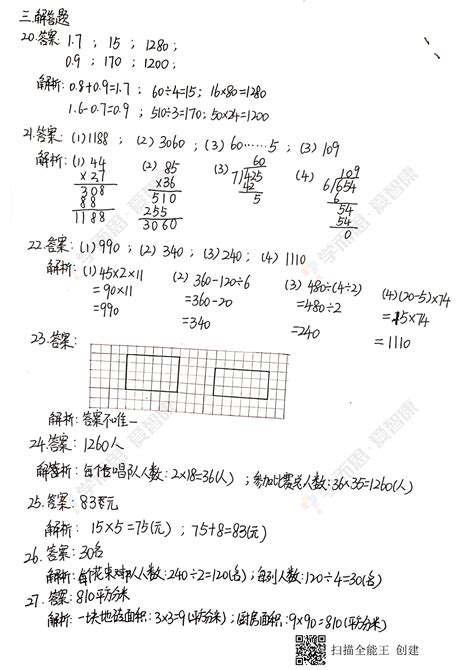 三.解答题
20.答案: 1.7 ; 15 ; 1280 ;
0.9 ; 170 ; 1200 ;
解析: 0.8+0.9=1.7 ; 60÷4=15; 16×80=1280
1.6-0.7=0.9 ; 510÷3=170; 50×24=1200
21.答案: (1)1188 ; (2)3060 ; (3)60……5 ; (3)109
解析: (1) 44 (2) 85 (3) 60 (4) 109
×27 ×36 7/425 6/654
308 510 42 6
88 255 5 54
1188 3060 54
0
22.答案: (1)990 ; (2)340 ; (3)240 ; (4)1110
解析: (1)45×2×11 (2)360-120÷6 (3)480÷(4÷2) (4)(20-5)×74
=90×11 =360-20 =480÷2 =15×74
=990 =340 =240 =1110
23.答案:
解析: 答案不唯一
24.答案: 1260人
解析: 每个合唱队人数: 2×18=36(人) ; 参加比赛总人数: 36×35=1260(人)
25.答案: 83元
解析: 15×5=75(元) ; 75+8=83(元)
26.答案: 30名
解析: 每个花束对队人数: 240÷2=120(名) ; 每列人数: 120÷4=30(名)
27.答案: 810平方分米
解析: 一块地砖面积: 3×3=9(平方分米) ; 厨房面积: 9×90=810(平方分米)
学而思·爱智康
学而思·爱智康
学而思·爱智康
学而思·爱智康
扫描全能王 创建